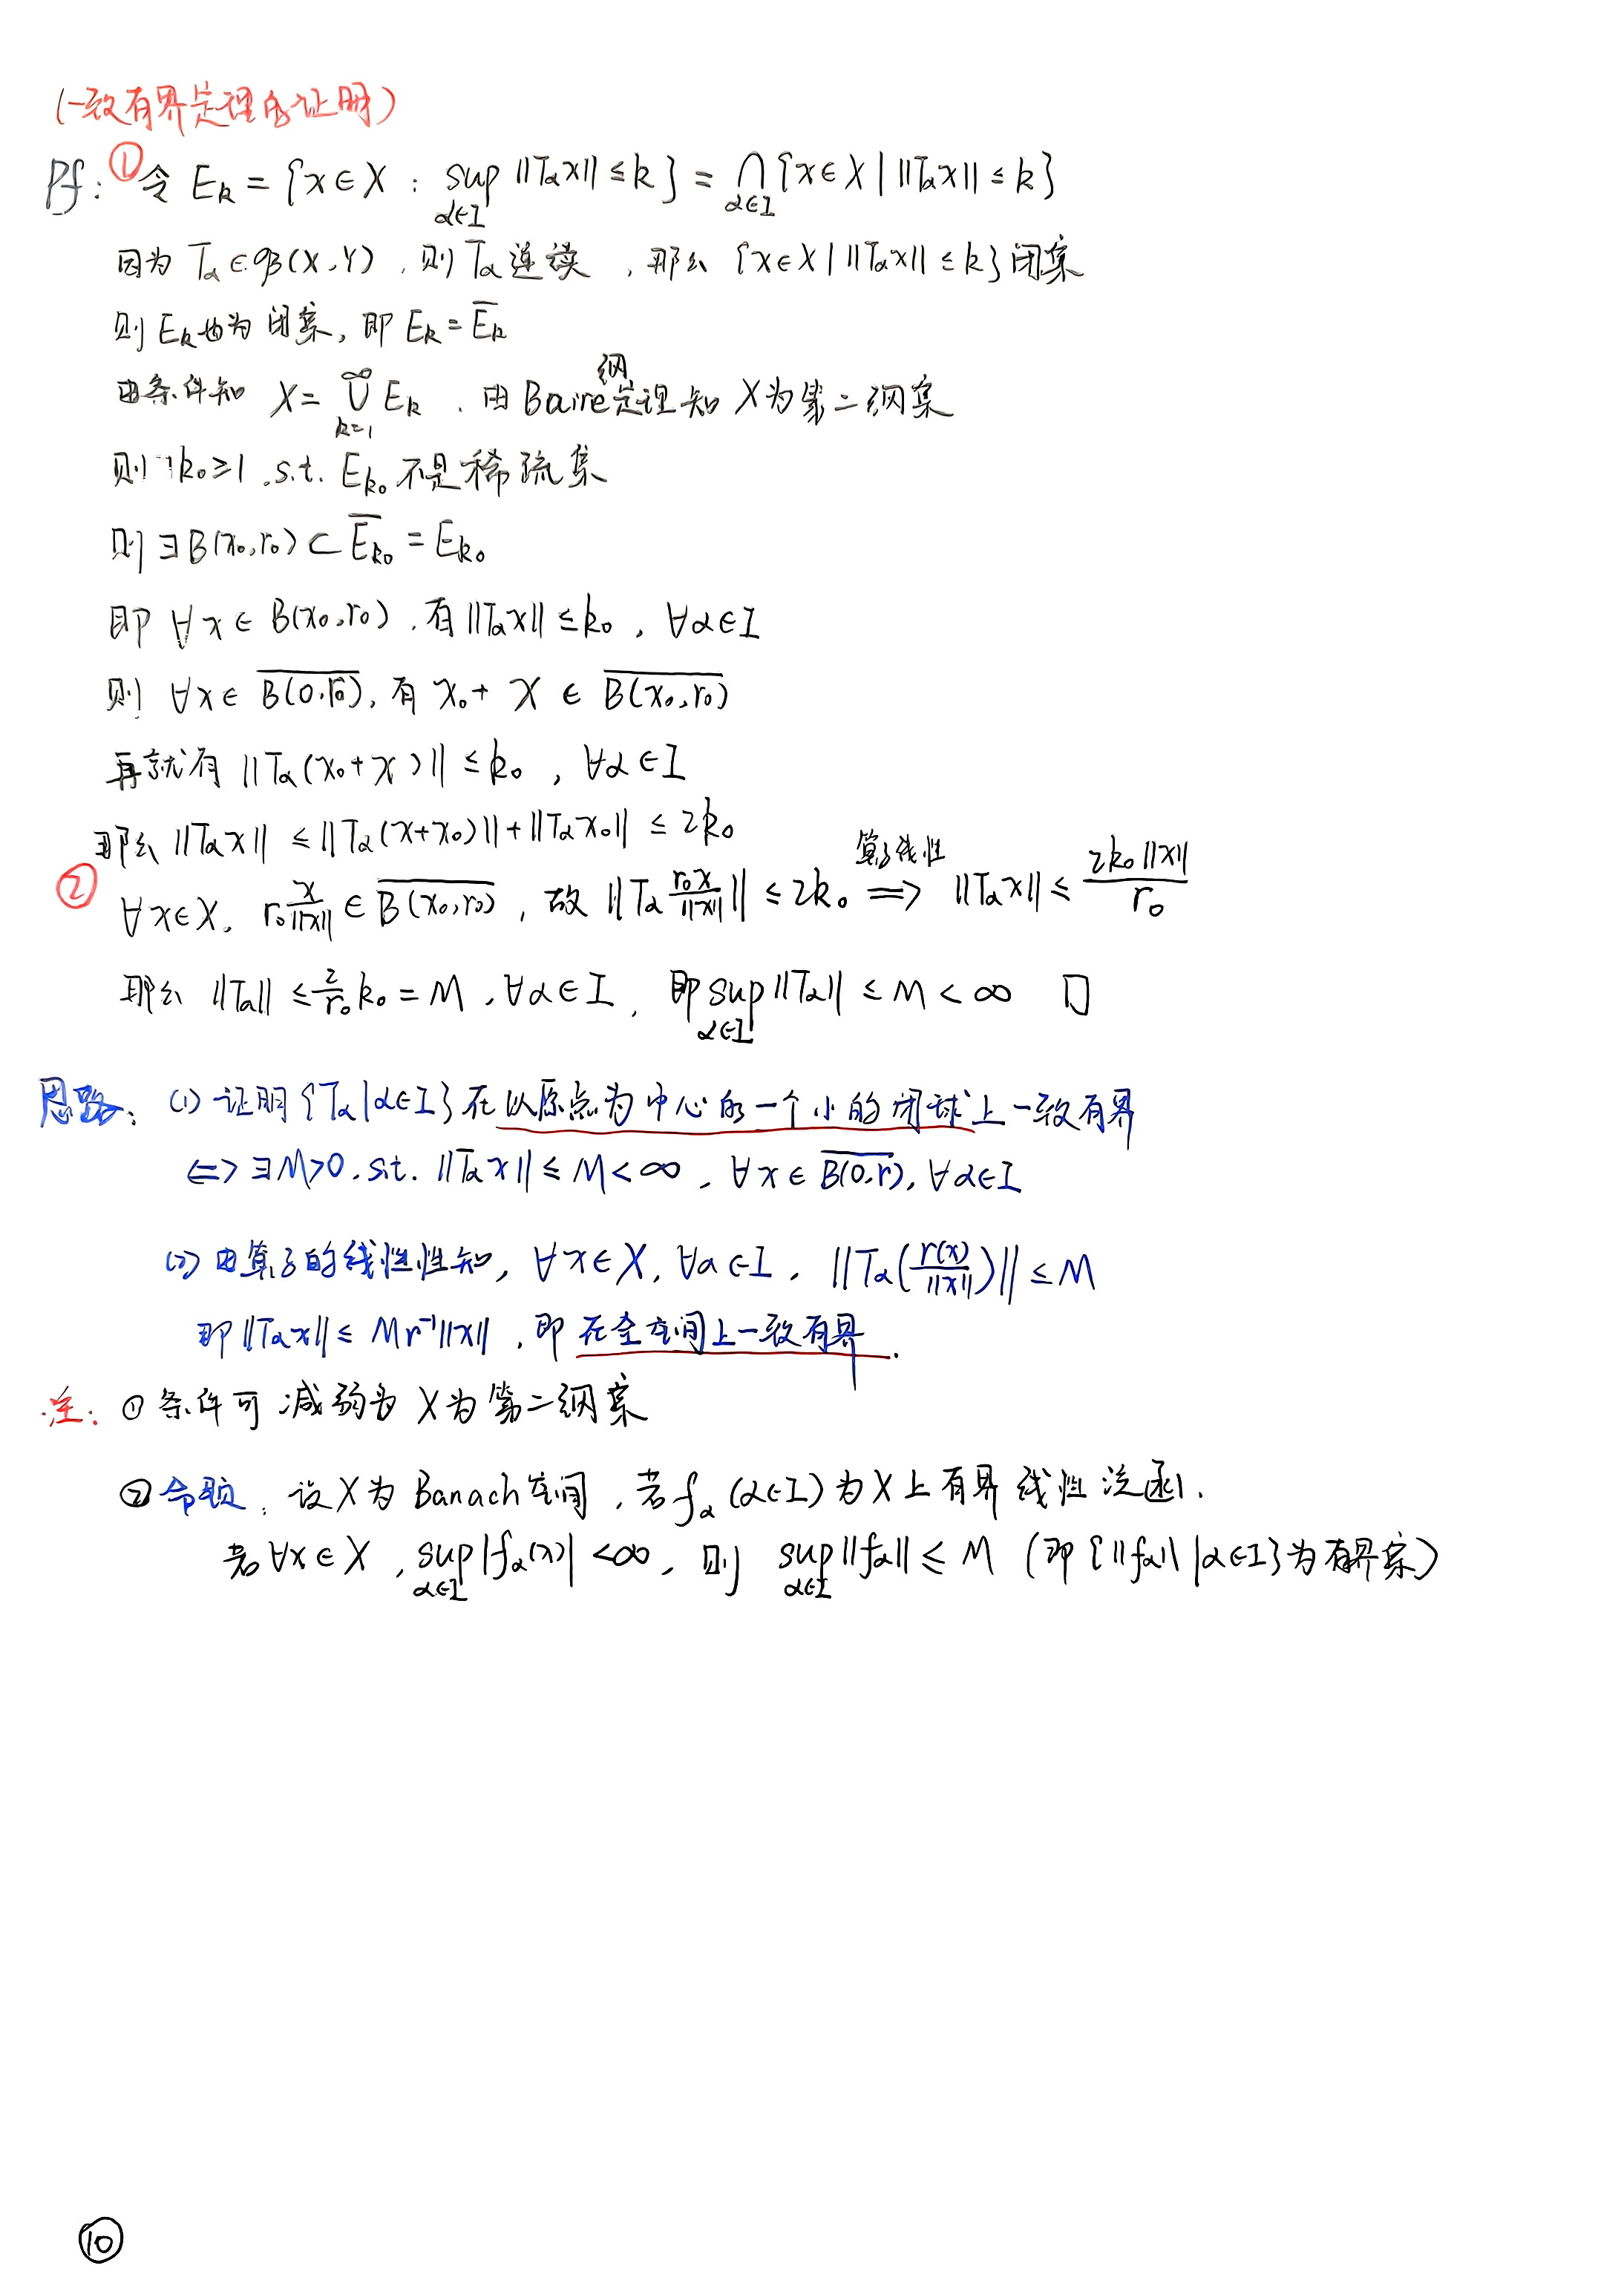 (一致有界定理的证明)
Pf: ① 令 E_k = {x∈X : sup_{α∈I} ||T_αx|| ≤ k} = ⋂_{α∈I} {x∈X | ||T_αx|| ≤ k}
因为 T_α ∈ 𝓑(X,Y), 则 T_α 连续, 那么 {x∈X | ||T_αx|| ≤ k} 闭集
则 E_k 也为闭集, 即 E_k = \overline{E_k}
由条件知 X = ⋃_{k=1}^{∞} E_k . 由 Baire 纲定理知 X为第二纲集
则 ∃k₀≥1 , s.t. E_{k₀} 不是稀疏集
则 ∃B(x₀,r₀) ⊂ \overline{E_{k₀}} = E_{k₀}
即 ∀x ∈ B(x₀,r₀), 有 ||T_αx|| ≤ k₀ , ∀α∈I
则 ∀x ∈ \overline{B(0,r₀)}, 有 x₀ + x ∈ \overline{B(x₀,r₀)}
再就有 ||T_α(x₀+x)|| ≤ k₀ , ∀α∈I
那么 ||T_αx|| ≤ ||T_α(x+x₀)|| + ||T_αx₀|| ≤ 2k₀
② ∀x∈X, r₀\frac{x}{||x||} ∈ \overline{B(x₀,r₀)} , 故 ||T_α\frac{r₀x}{||x||}|| ≤ 2k₀ \overset{算子线性}{⟹} ||T_αx|| ≤ \frac{2k₀||x||}{r₀}
那么 ||T_α|| ≤ \frac{2}{r₀}k₀ = M , ∀α∈I , 即 sup_{α∈I} ||T_α|| ≤ M < ∞ □
思路: (1) 证明{T_α|α∈I}在以原点为中心的一个小的闭球上一致有界
⟺ ∃M>0 , s.t. ||T_αx|| ≤ M < ∞ , ∀x∈\overline{B(0,r)}, ∀α∈I
(2) 由算子的线性性知, ∀x∈X, ∀α∈I , ||T_α(\frac{r(x)}{||x||})|| ≤ M
即 ||T_αx|| ≤ Mr⁻¹||x|| , 即在全空间上一致有界.
注: ① 条件可减弱为 X为第二纲集
② 命题: 设X为Banach空间, 若f_α(α∈I)为X上有界线性泛函.
若∀x∈X , sup_{α∈I}|f_α(x)| < ∞, 则 sup_{α∈I}||f_α|| ≤ M (即{||f_α|| | α∈I}为有界集)
⑩